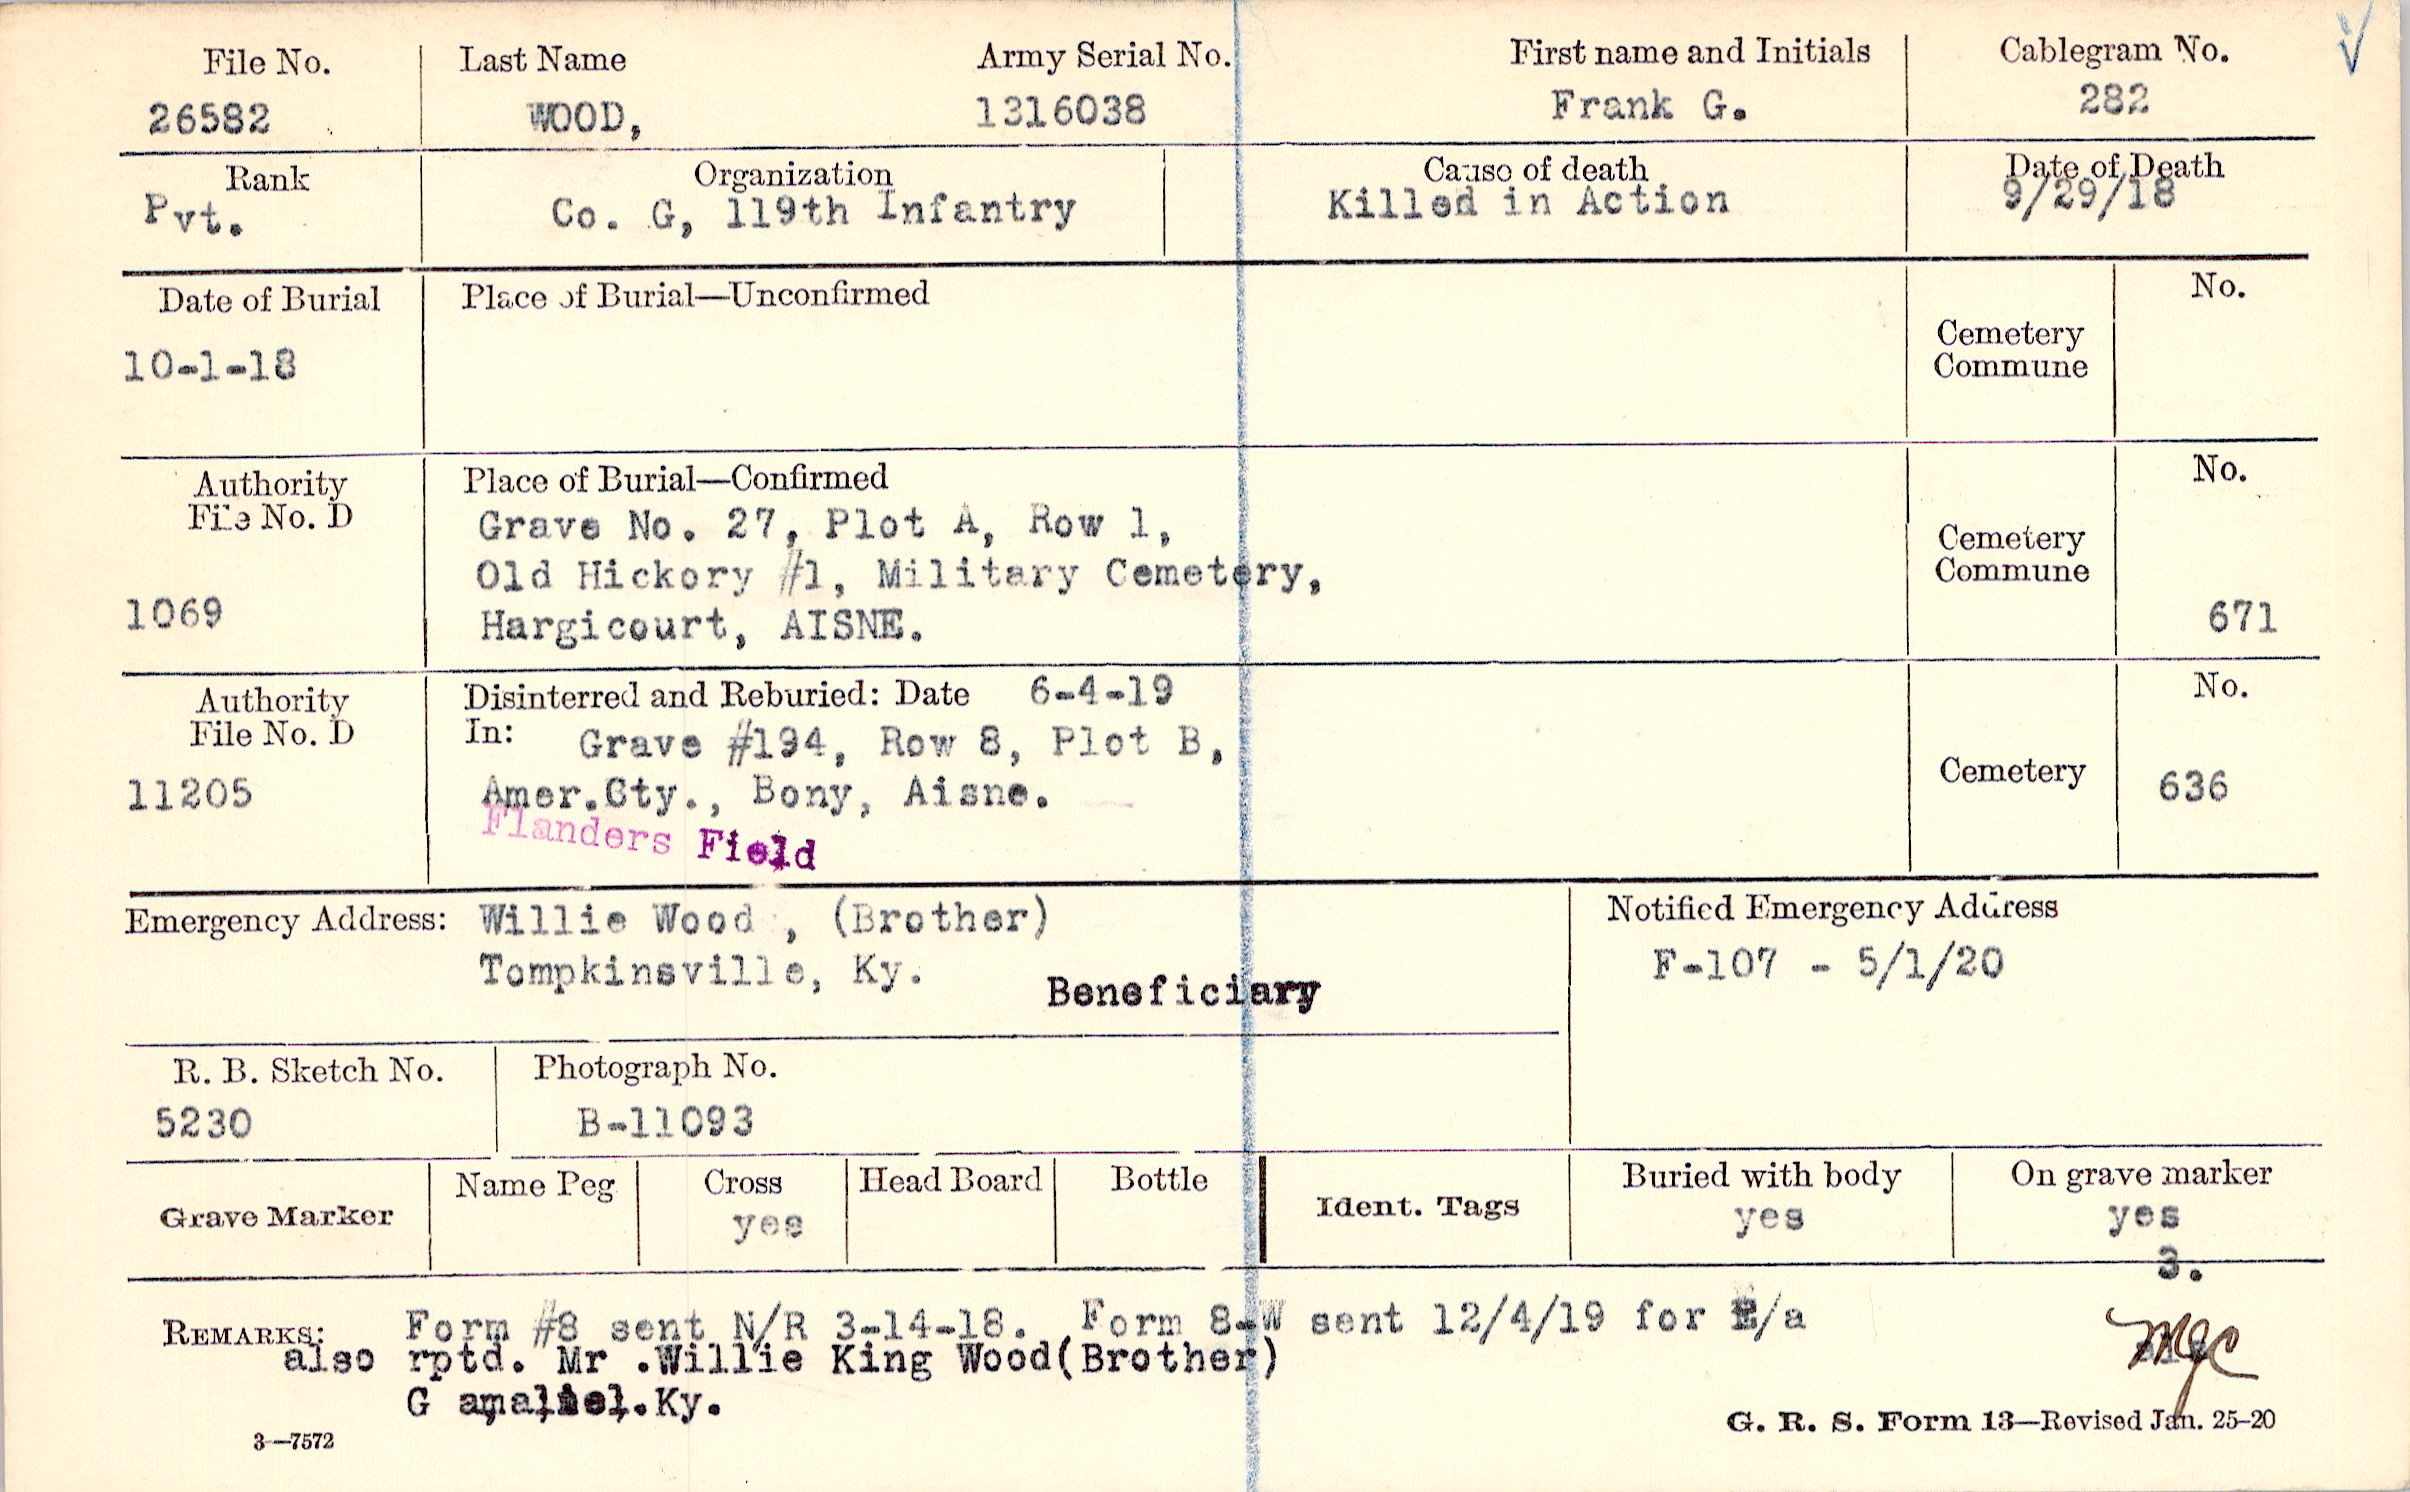 File No. Last Name Army Serial No. First name and Initials Cablegram No.
26582 WOOD, 1316038 Frank G. 282
Rank Organization Cause of death Date of Death
Pvt. Co. G, 119th Infantry Killed in Action 9/29/18
Date of Burial Place of Burial—Unconfirmed No.
10-1-18 Cemetery
Commune
Authority Place of Burial—Confirmed No.
File No. D Grave No. 27, Plot A, Row 1, Cemetery
Old Hickory #1, Military Cemetery, Commune
1069 Hargicourt, AISNE. 671
Authority Disinterred and Reburied: Date 6-4-19 No.
File No. D In: Grave #194, Row 8, Plot B,
11205 Amer.Cty., Bony, Aisne. Cemetery 636
Flanders Field
Emergency Address: Willie Wood , (Brother) Notified Emergency Address
Tompkinsville, Ky. F-107 - 5/1/20
Beneficiary
R. B. Sketch No. Photograph No.
5230 B-11093
Grave Marker Name Peg Cross Head Board Bottle Ident. Tags Buried with body On grave marker
yes yes yes
3.
REMARKS: Form #8 sent N/R 3-14-18. Form 8-W sent 12/4/19 for E/a
also rptd. Mr .Willie King Wood(Brother) MGC
G amaliel.Ky.
3—7572 G. R. S. Form 13—Revised Jan. 25-20